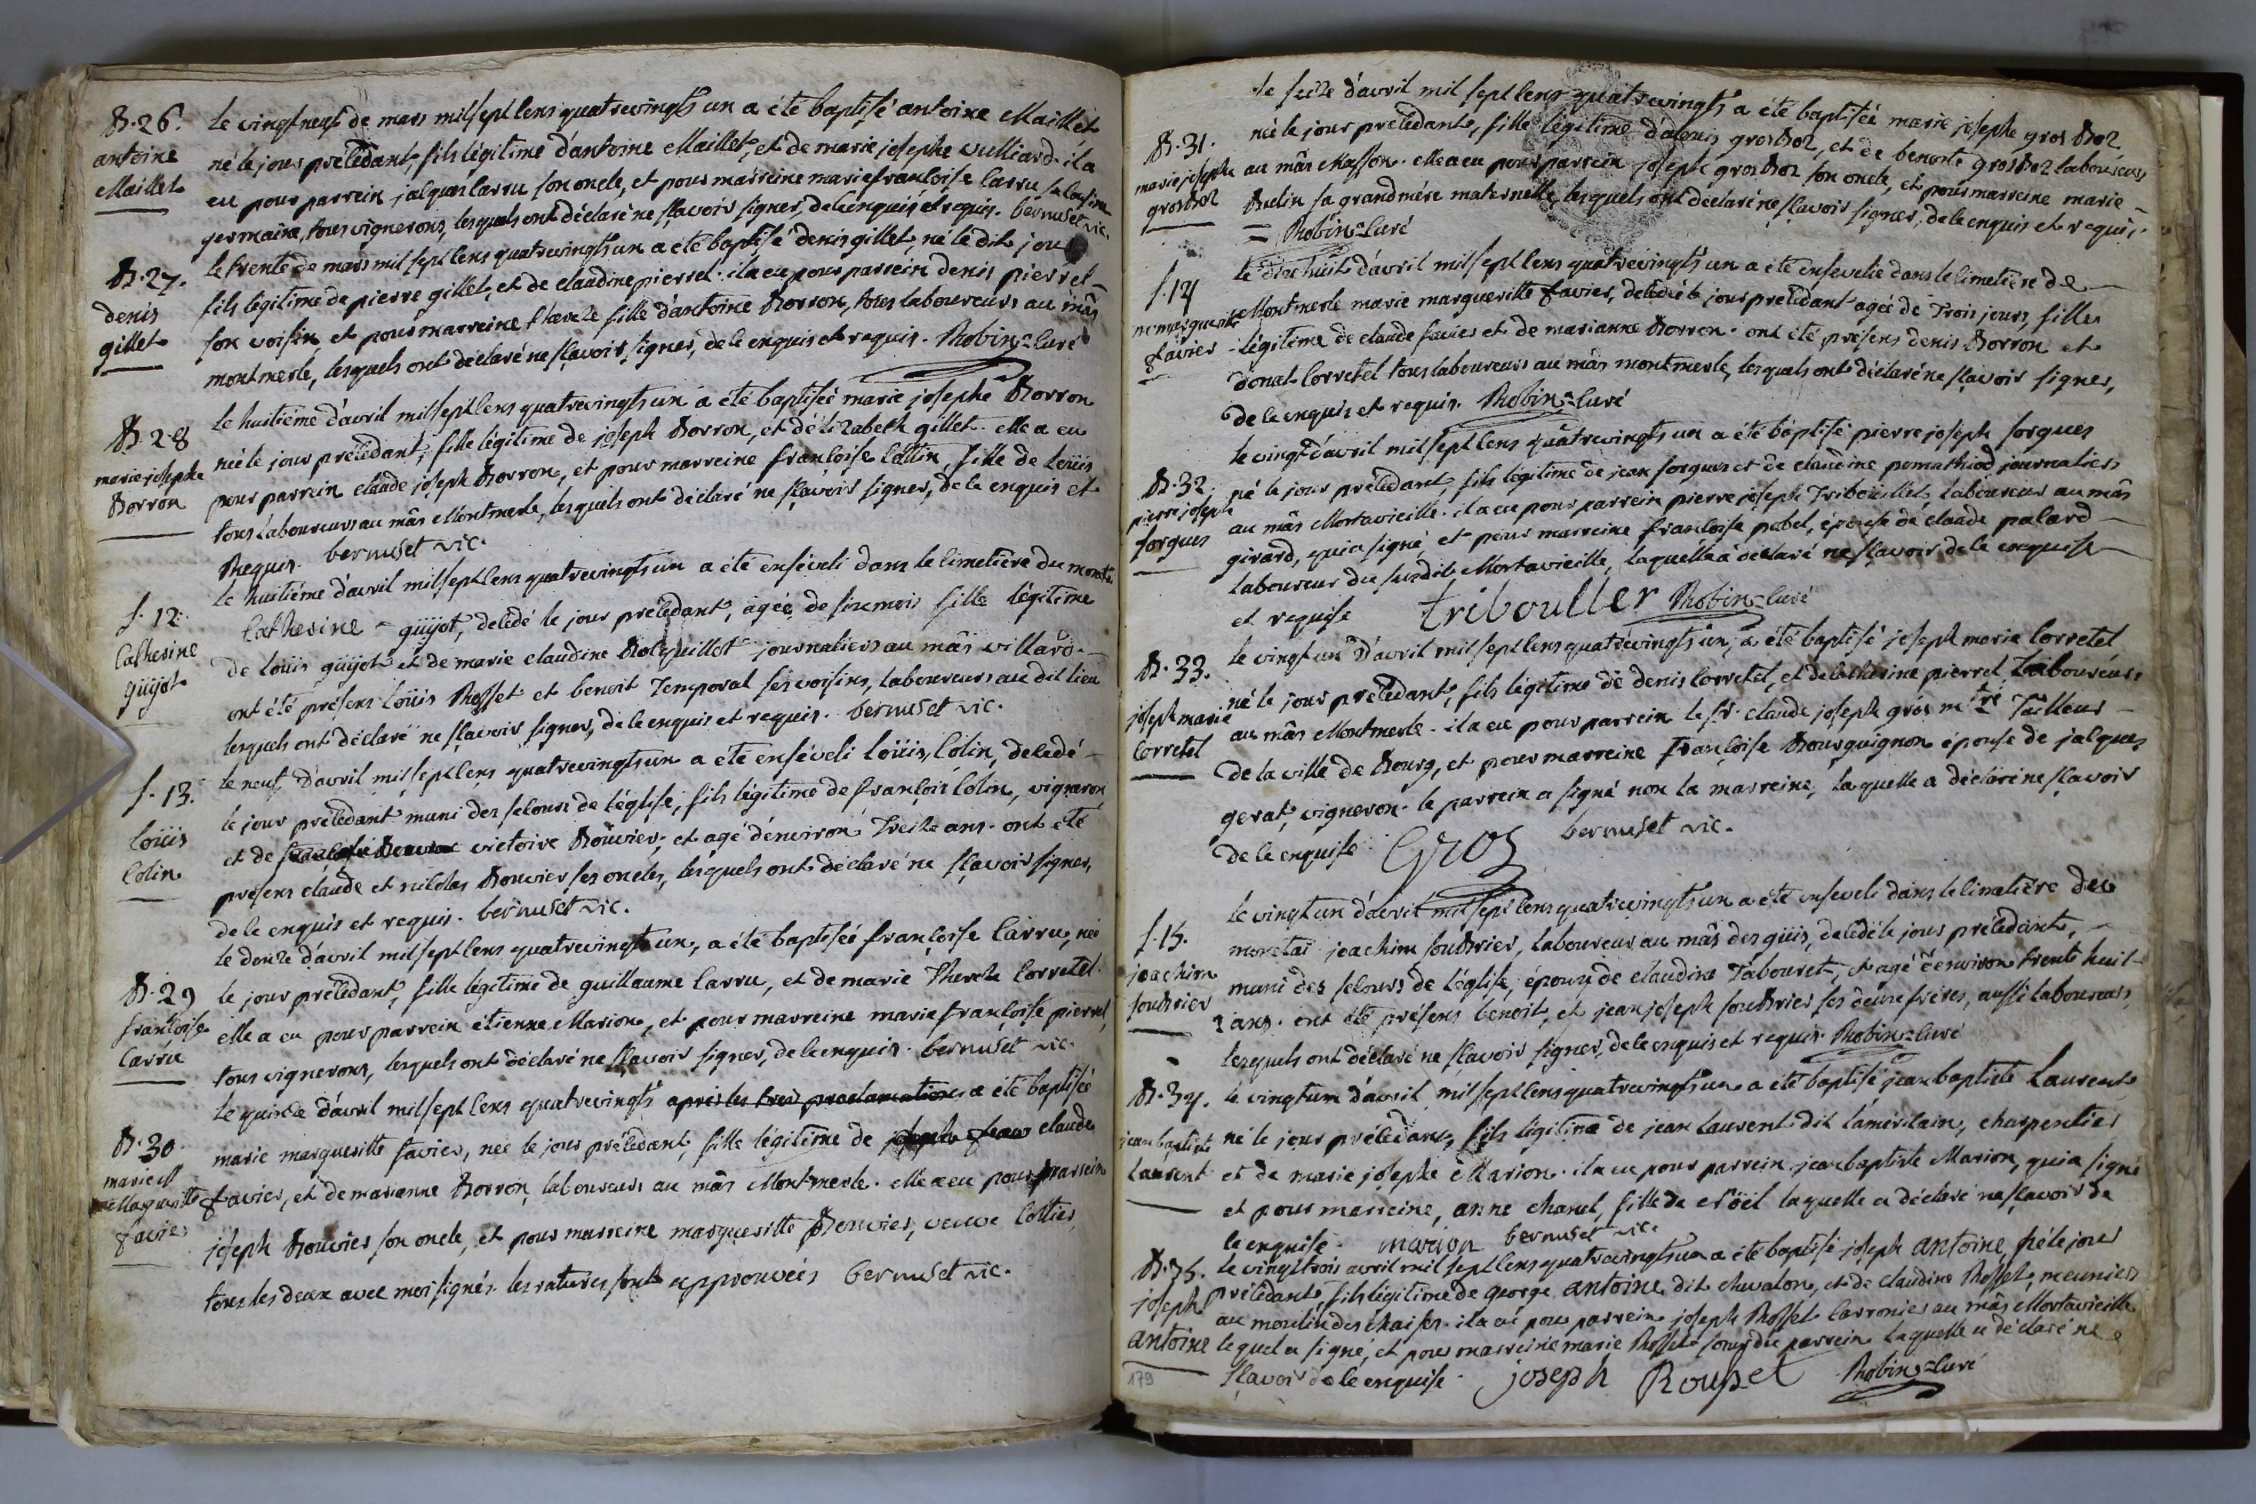 B. 26.
antoine
Maillet
le vingt neuf de mars mil sept cens quatrevingts un a été baptisé antoine Maillet
né le jour précédant, fils légitime d'antoine Maillet, et de marie josephe vulliard. il a
eu pour parrein jacques carru son oncle, et pour marreine marie françoise carru sa cousine
germaine, tous vignerons, lesquels ont déclaré ne sçavoir signer, de ce enquis et requis. bernuset vic.
B. 27.
denis
gillet
le trente de mars mil sept cens quatrevingts un a été baptisé denis gillet, né le dit jour
fils légitime de pierre gillet, et de claudine pierrel. il a eu pour parrein denis pierrel
son voisin et pour marreine thereze fille d'antoine Borron, tous laboureurs au mâs
montmerle, lesquels ont déclaré ne sçavoir signer, de ce enquis et requis. Robin=curé
B. 28
marie josephe
Borron
le huitième d'avril mil sept cens quatrevingts un a été baptisée marie josephe Borron
née le jour précédant, fille légitime de joseph Borron, et d'élizabeth gillet. elle a eu
pour parrein claude joseph Borron, et pour marreine françoise cottin, fille de Loüis
tous laboureurs au mâs Montmerle, lesquels ont déclaré ne sçavoir signer, de ce enquis et
Requis. bernuset vic.
s. 12.
Catherine
güyot
le huitième d'avril mil sept cens quatrevingts un a été enséveli dans le cimetière du
Catherine güyot, décédé le jour précédant, agée de six mois fille légitime
de Loüis güyot et de marie claudine journaliers au mâs villard.
ont été présens Loüis Rosset et benoit Temporal ses voisins, laboureurs au dit lieu
lesquels ont déclaré ne sçavoir signer, de ce enquis et requis. bernuset vic.
s. 13.
Loüis
Colin
le neuf d'avril mil sept cens quatrevingts un a été enséveli Loüis Colin, décédé
le jour précédant muni des secours de l'église, fils légitime de françois Colin, vigneron
et de victoire Bouvier, et agé d'environ treize ans. ont été
présens claude et nicolas Bouvier ses oncles, lesquels ont déclaré ne sçavoir signer,
de ce enquis et requis. bernuset vic.
B. 29
françoise
Carru
le douze d'avril mil sept cens quatrevingts un, a été baptisée françoise Carru, née
le jour précédant, fille légitime de guillaume Carru, et de marie Thereze Corretel.
elle a eu pour parrein étienne Marion, et pour marreine marie françoise pierrel,
tous vignerons, lesquels ont déclaré ne sçavoir signer, de ce enquis. bernuset vic.
B. 30.
marie
Marguerite
favier
le quinze d'avril mil sept cens quatrevingts après les trois proclamations a été baptisée
marie marguerite favier, née le jour précédant, fille légitime de claude
favier, et de marianne Borron, laboureurs au mâs Montmerle. elle a eu pour parrein
joseph Bouvier son oncle, et pour marreine marguerite Bouvier, veuve Cottier,
tous les deux avec moi signés. les ratures sont approuvées bernuset vic.
B. 31.
marie josephe
grosBoz
le seize d'avril mil sept cens quatrevingts a été baptisée marie josephe gros Boz
née le jour précédant, fille légitime d'alouis grosboz, et de benoite grosboz laboureurs
au mâs Masson. elle a eu pour parrein joseph grosboz son oncle, et pour marreine marie
Bulin sa grandmère maternelle, lesquels ont déclaré ne sçavoir signer, de ce enquis et requis.
= Robin=curé
s. 14
me marguerite
favier
le dix huit d'avril mil sept cens quatrevingts un a été ensevelie dans le cimetière de
Montmerle marie marguerite favier, décédée le jour précédant agée de Trois jours, fille
légitime de claude favier et de marianne Borron. ont été présens denis Borron et
donat Corretel tous laboureurs au mâs montmerle, lesquels ont déclaré ne sçavoir signer,
de ce enquis et requis. Robin=curé
B. 32.
pierre joseph
sorgues
le vingt d'avril mil sept cens quatrevingts un a été baptisé pierre joseph sorgues
né le jour précédant, fils légitime de jean sorgues et de claudine pomathiod journaliers
au mâs Mortavieille. il a eu pour parrein pierre joseph Triboüillet laboureur au mâs
girard, qui a signé et pour marreine françoise pobel, épouse de claude palard
laboureur du susdit Mortavieille, laquelle a déclaré ne sçavoir de ce enquise
et requise tribouller Robin=curé
B. 33.
joseph marie
Corretel
le vingt un d'avril mil sept cens quatrevingts un, a été baptisé joseph marie Corretel
né le jour précédant, fils légitime de denis Corretel, et de catherine pierrel, Laboureurs
au mâs Montmerle. il a eu pour parrein le sr. claude joseph gros mtre Tailleur
de la ville de Bourg, et pour marreine françoise Bourguignon épouse de jacques
gerat, vigneron. le parrein a signé non la marreine, laquelle a déclaré ne sçavoir
de ce enquise. Gros bernuset vic.
s. 15.
joachim
soudrier
le vingt un d'avril mil sept cens quatrevingts un a été enseveli dans le cimetière de
joachim soudrier, laboureur au mâs des güis, décédé le jour précédant,
muni des secours de l'église, époux de claudine Tabouret, et agé d'environ trente huit
ans. ont été présens benoit, et jean joseph soudrier ses deux frères, aussi laboureurs,
lesquels ont déclaré ne sçavoir signer, de ce enquis et requis. Robin=curé
B. 34.
jean baptiste
Laurent
le vingt un d'avril mil sept cens quatrevingts un a été baptisé jean baptiste Laurent
né le jour précédant, fils légitime de jean Laurent dit l'américain, charpentier
et de marie josephe Marion. il a eu pour parrein jean baptiste Marion, qui a signé
et pour marreine, anne chanel, fille de noël laquelle a déclaré ne sçavoir de
ce enquise. marion bernuset vic.
B. 35.
joseph
antoine
le vingt trois avril mil sept cens quatrevingts un a été baptisé joseph antoine, né le jour
précédant, fils légitime de george antoine, dit chevalon, et de claudine Rosset, meuniers
au moulin des chaises. il a eu pour parrein joseph Rosset Carronier au mâs Mortavieille
lequel a signé, et pour marreine marie Rosset soeur du parrein laquelle a déclaré ne
sçavoir de ce enquise. joseph Rousset Robin=curé
179